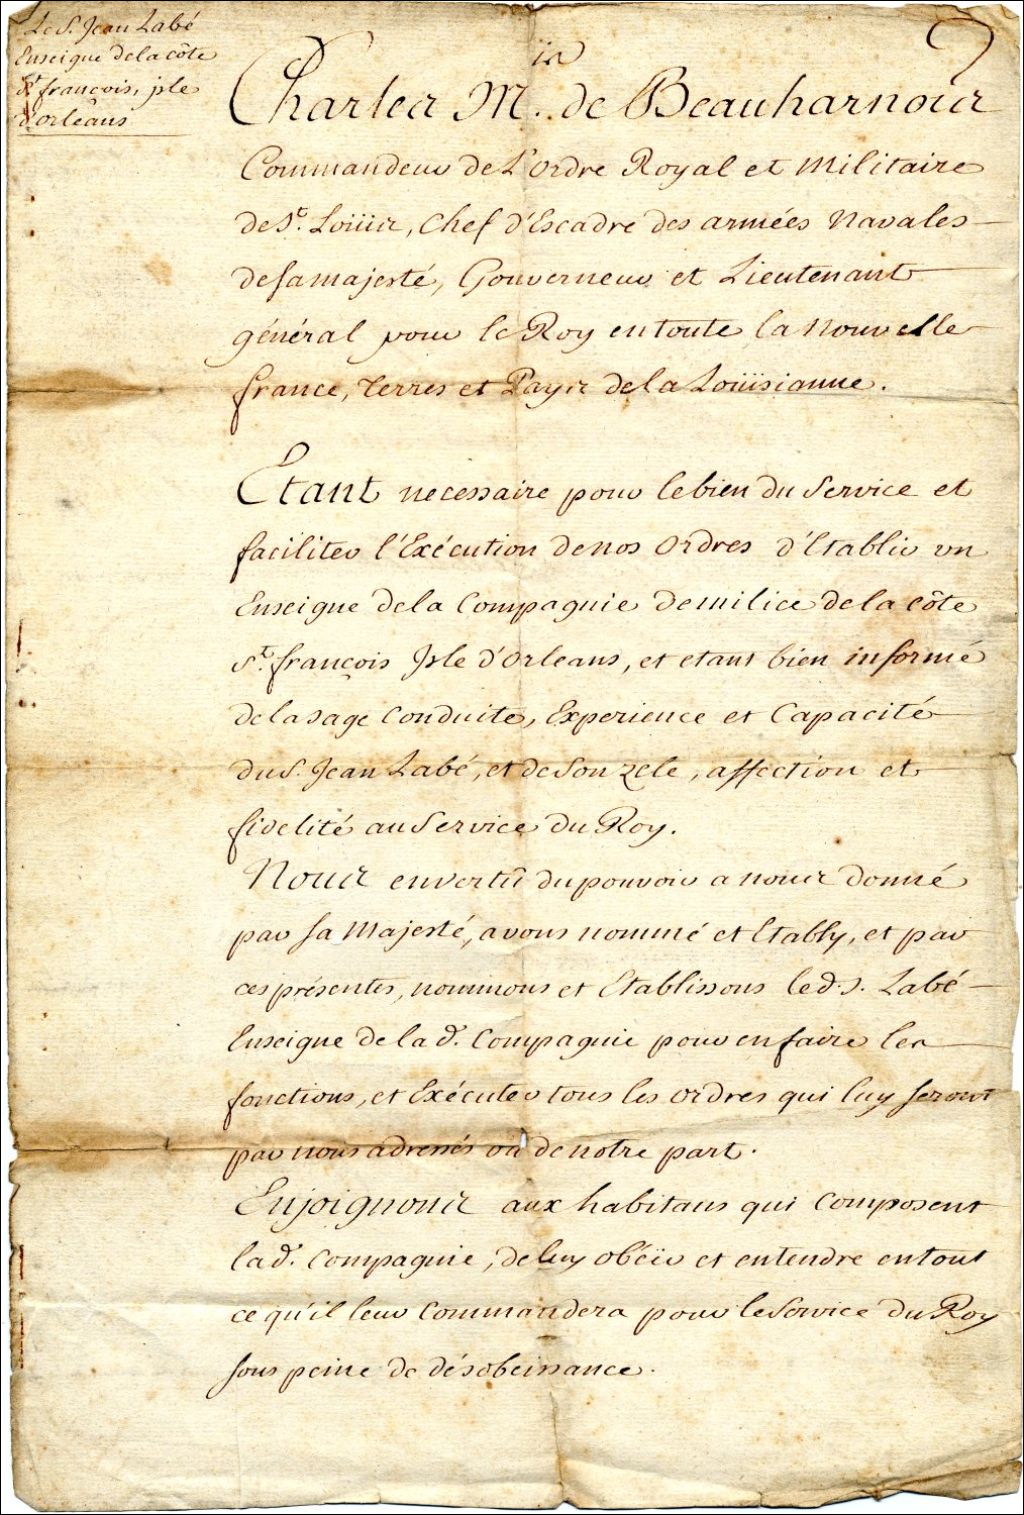 Le S. Jean Labé
Enseigne dela côte
St françois, jsle
d'orléans
Charles M.is de Beauharnois
Commandeur de L'Ordre Royal et Militaire
de St. Loüis, Chef d'Escadre des armées Navales
desamajesté, Gouverneur et Lieutenant
général pour le Roy entoute la Nouvelle
france, Terres et Pays dela Loüisianne.
Etant necessaire pour lebien du Service et
faciliter l'Exécution denos Ordres d'Etablir un
Enseigne dela Compagnie demilice dela côte
St. françois Jsle d'orleans, et etant bien informé
delasage Conduite, Experience et Capacité
du S. Jean Labé, et deson zele, affection et
fidelité auservice du Roy.
Nous envertû dupouvoir a nous donné
par sa Majesté, avons nommé et Etably, et par
ces présentes, nommons et Etablissons led. S. Labé
Enseigne de la d. Compagnie pour enfaire les
fonctions, et Exécuter tous les ordres qui luy seront
par nous adressés ou de notre part.
Enjoignons aux habitans qui Composent
lad. Compagnie, deluy obéir et entendre entout
ce qu'il leur Commandera pour leservice du Roy
sous peine de désobeissance.